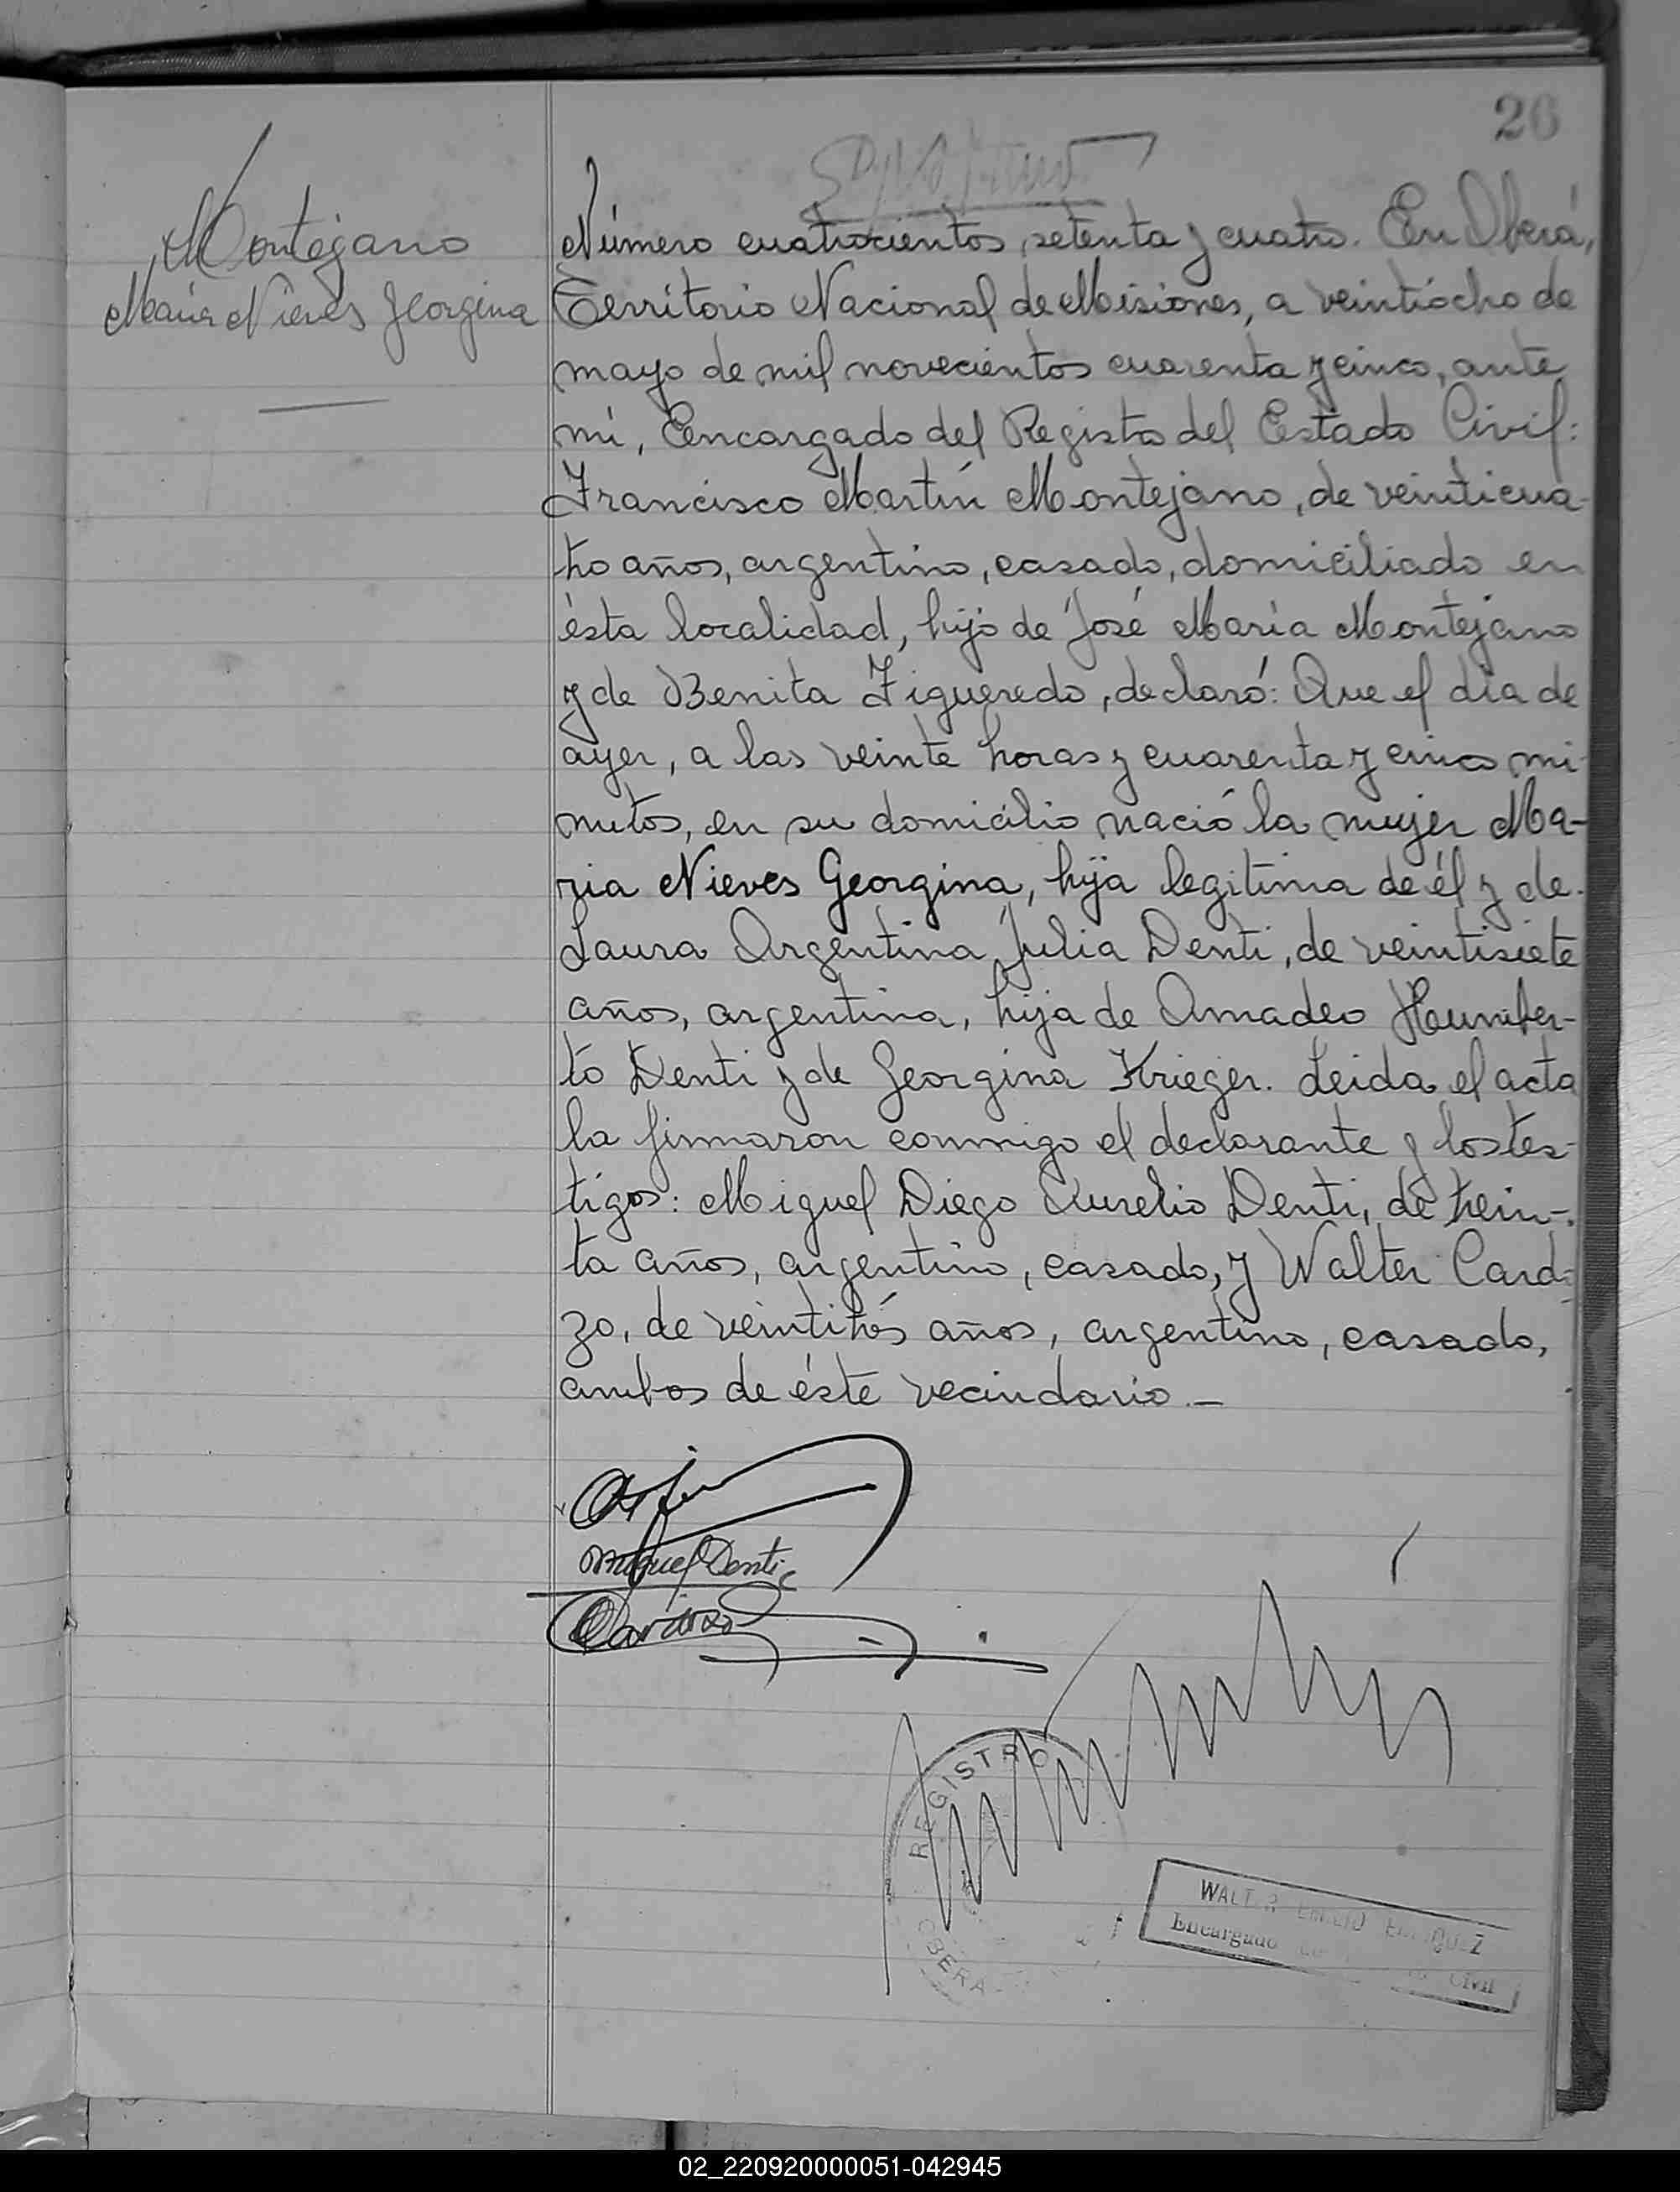 26
Montejano
María Nieves Georgina
Número cuatrocientos setenta y cuatro. En Oberá,
Territorio Nacional de Misiones, a veintiocho de
mayo de mil novecientos cuarenta y cinco, ante
mí, Encargado del Registro del Estado Civil:
Francisco Martín Montejano, de veinticua-
tro años, argentino, casado, domiciliado en
ésta localidad, hijo de José María Montejano
y de Benita Figueredo, declaró: Que el día de
ayer, a las veinte horas y cuarenta y cinco mi-
nutos, en su domicilio nació la mujer Ma-
ria Nieves Georgina, hija legítima de él y de
Laura Argentina Julia Denti, de veintisiete
años, argentina, hija de Amadeo Humber-
to Denti y de Georgina Krieger. Leida el acta
la firmaron conmigo el declarante y los tes-
tigos: Miguel Diego Aurelio Denti, de trein-
ta años, argentino, casado, y Walter Cardo
zo, de veintitrés años, argentino, casado,
ambos de éste vecindario.—
Miguel Denti
Cardozo
REGISTRO
OBERA
WALTER
Encargado Civil
02_220920000051-042945